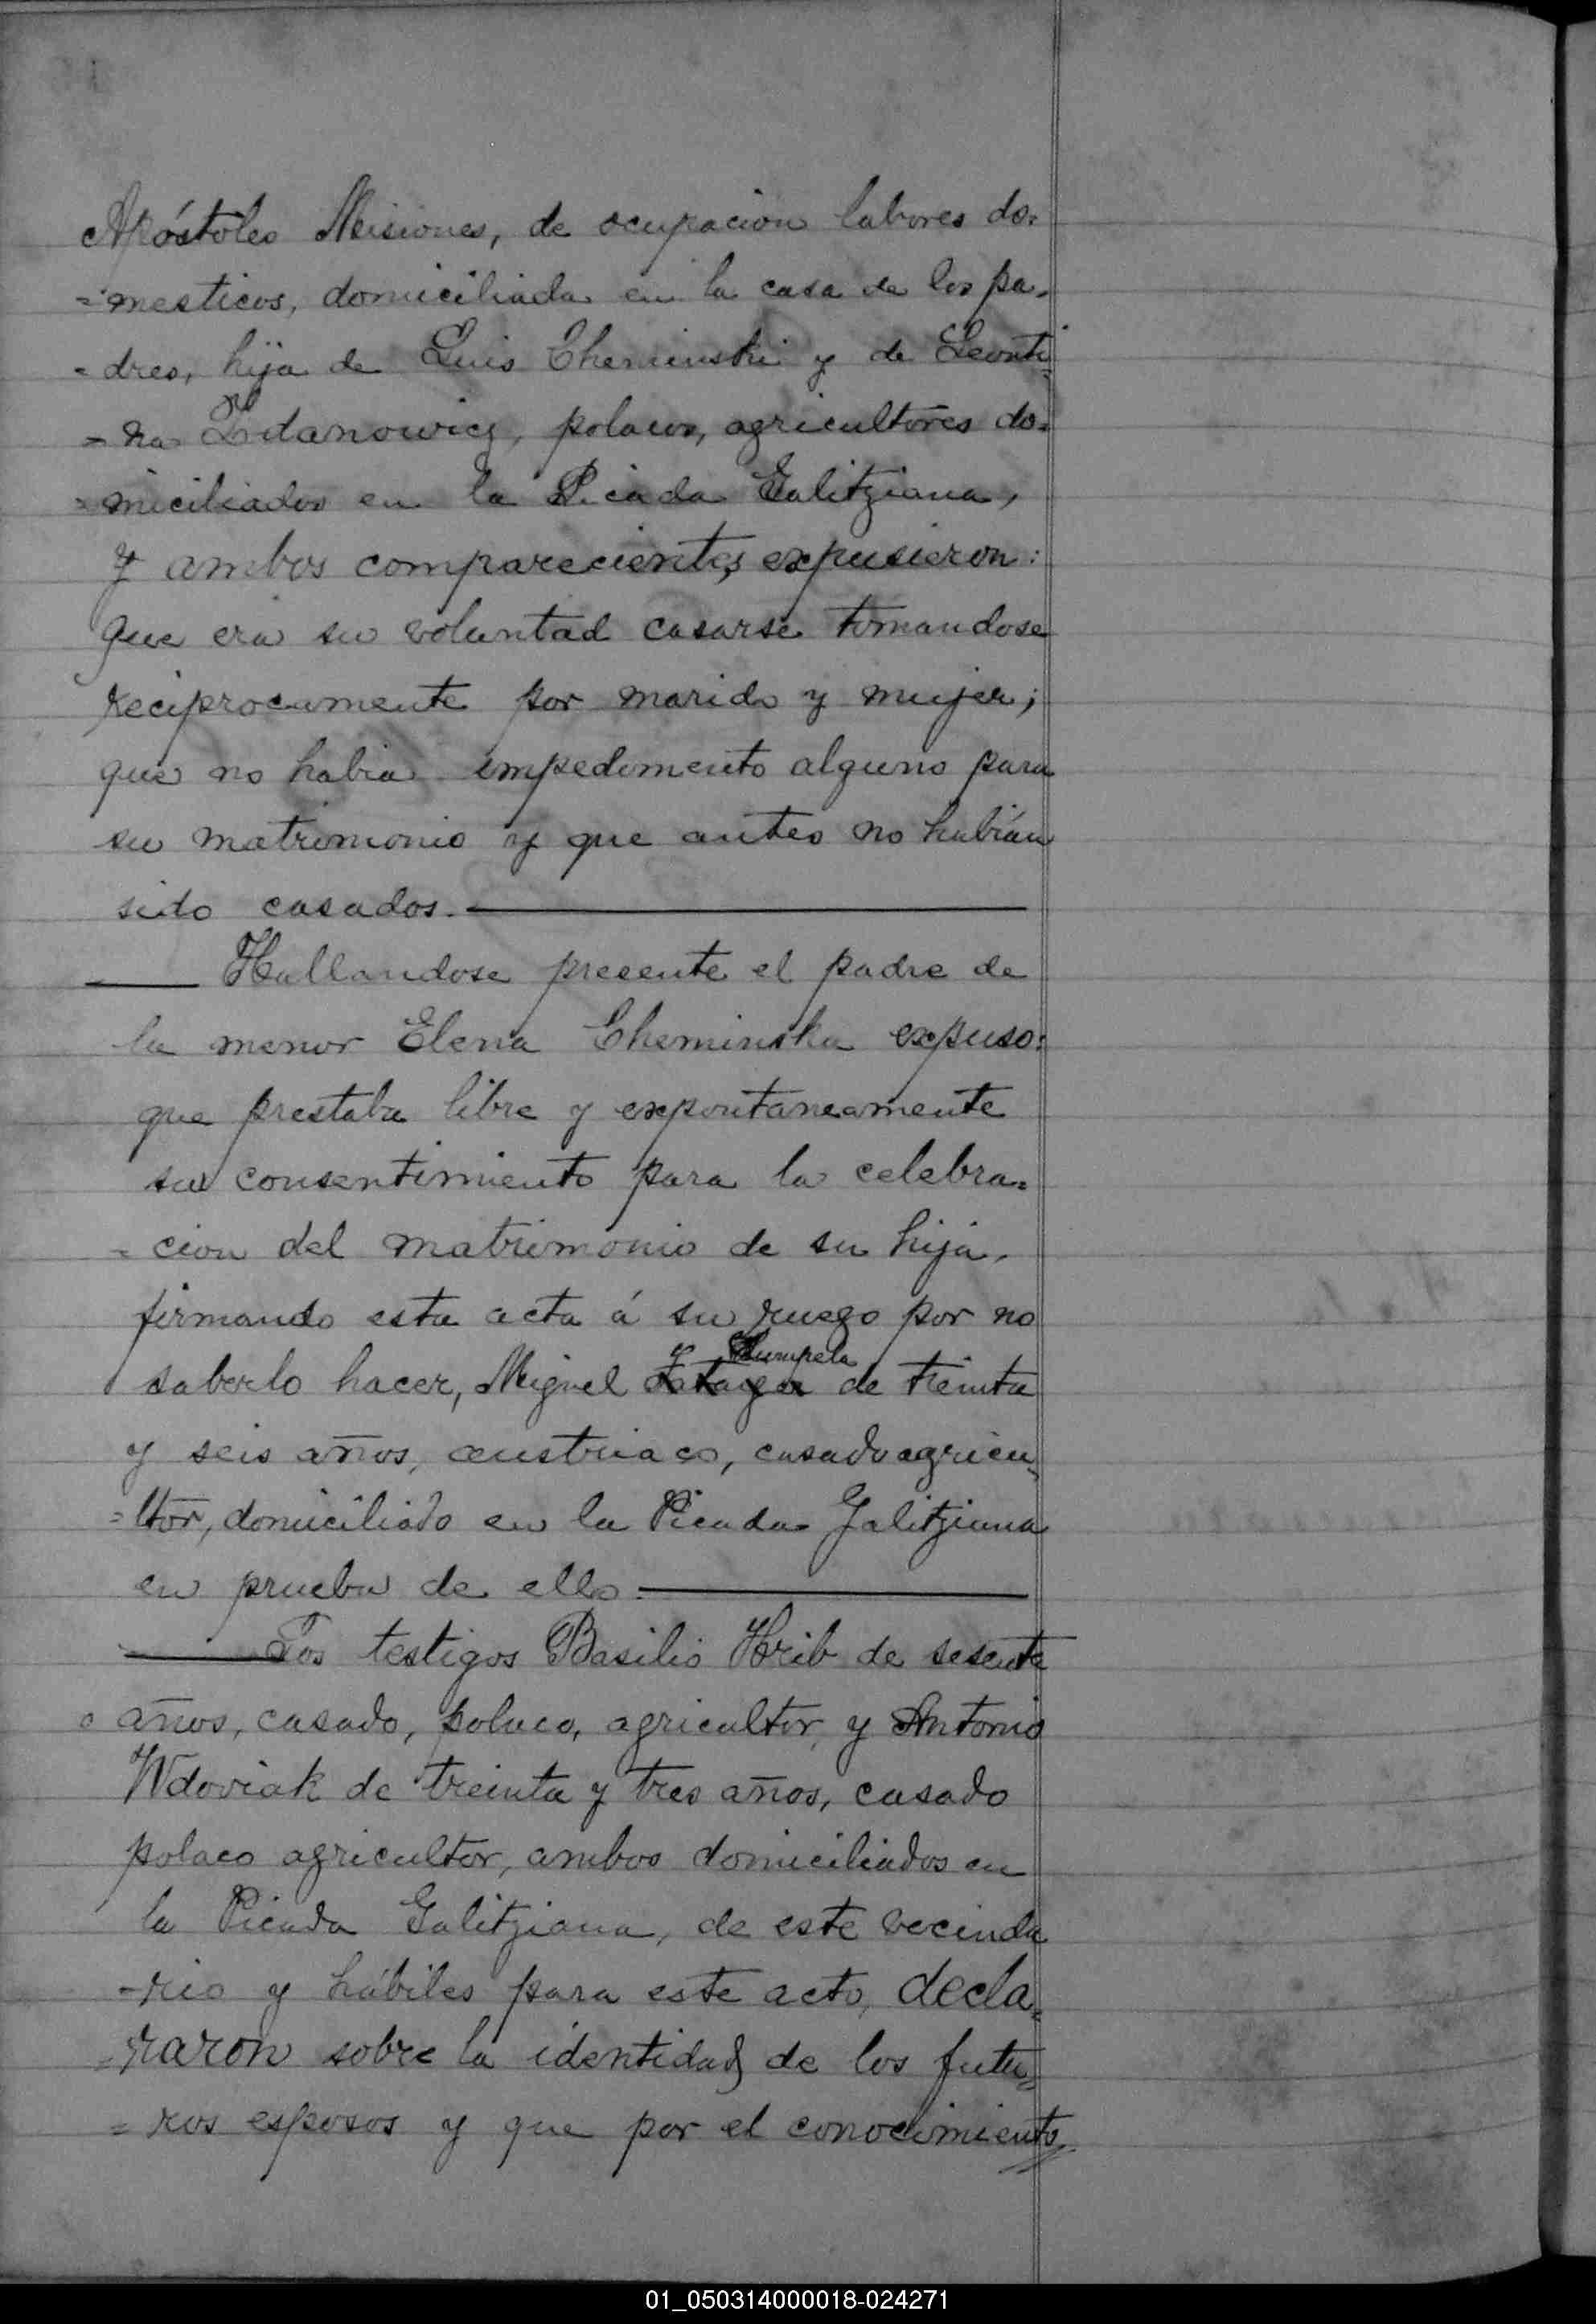 Apóstoles Misiones, de ocupacion labores do=
=mesticos, domiciliada en la casa de los pa=
=dres, hija de Luis Cheminski y de Leonti=
=na Zdanowicz, polacos, agricultores do=
=miciliados en la Picada Galitziana,
Y ambos comparecientes expusieron:
Que era su voluntad casarse tomandose
reciprocamente por marido y mujer;
que no habia impedimento alguno para
su matrimonio y que antes no habián
sido casados.
Hallandose presente el padre de
la menor Elena Cheminska expuso:
que prestaba libre y expontaneamente
su consentimiento para la celebra=
=cion del matrimonio de su hija,
firmando esta acta á su ruego por no
saberlo hacer, Miguel de treinta
y seis años, austriaco, casado agricu=
=ltor, domiciliado en la Picada Galitziana
en prueba de ello.
Los testigos Basilio Hrib de sesenta
años, casado, polaco, agricultor, y Antonio
Wdoviak de treinta y tres años, casado
polaco agricultor, ambos domiciliados en
la Picada Galitziana, de este vecinda
-rio y hábiles para este acto, decla=
=raron sobre la identidad de los futu=
=ros esposos y que por el conocimiento
01_050314000018-024271